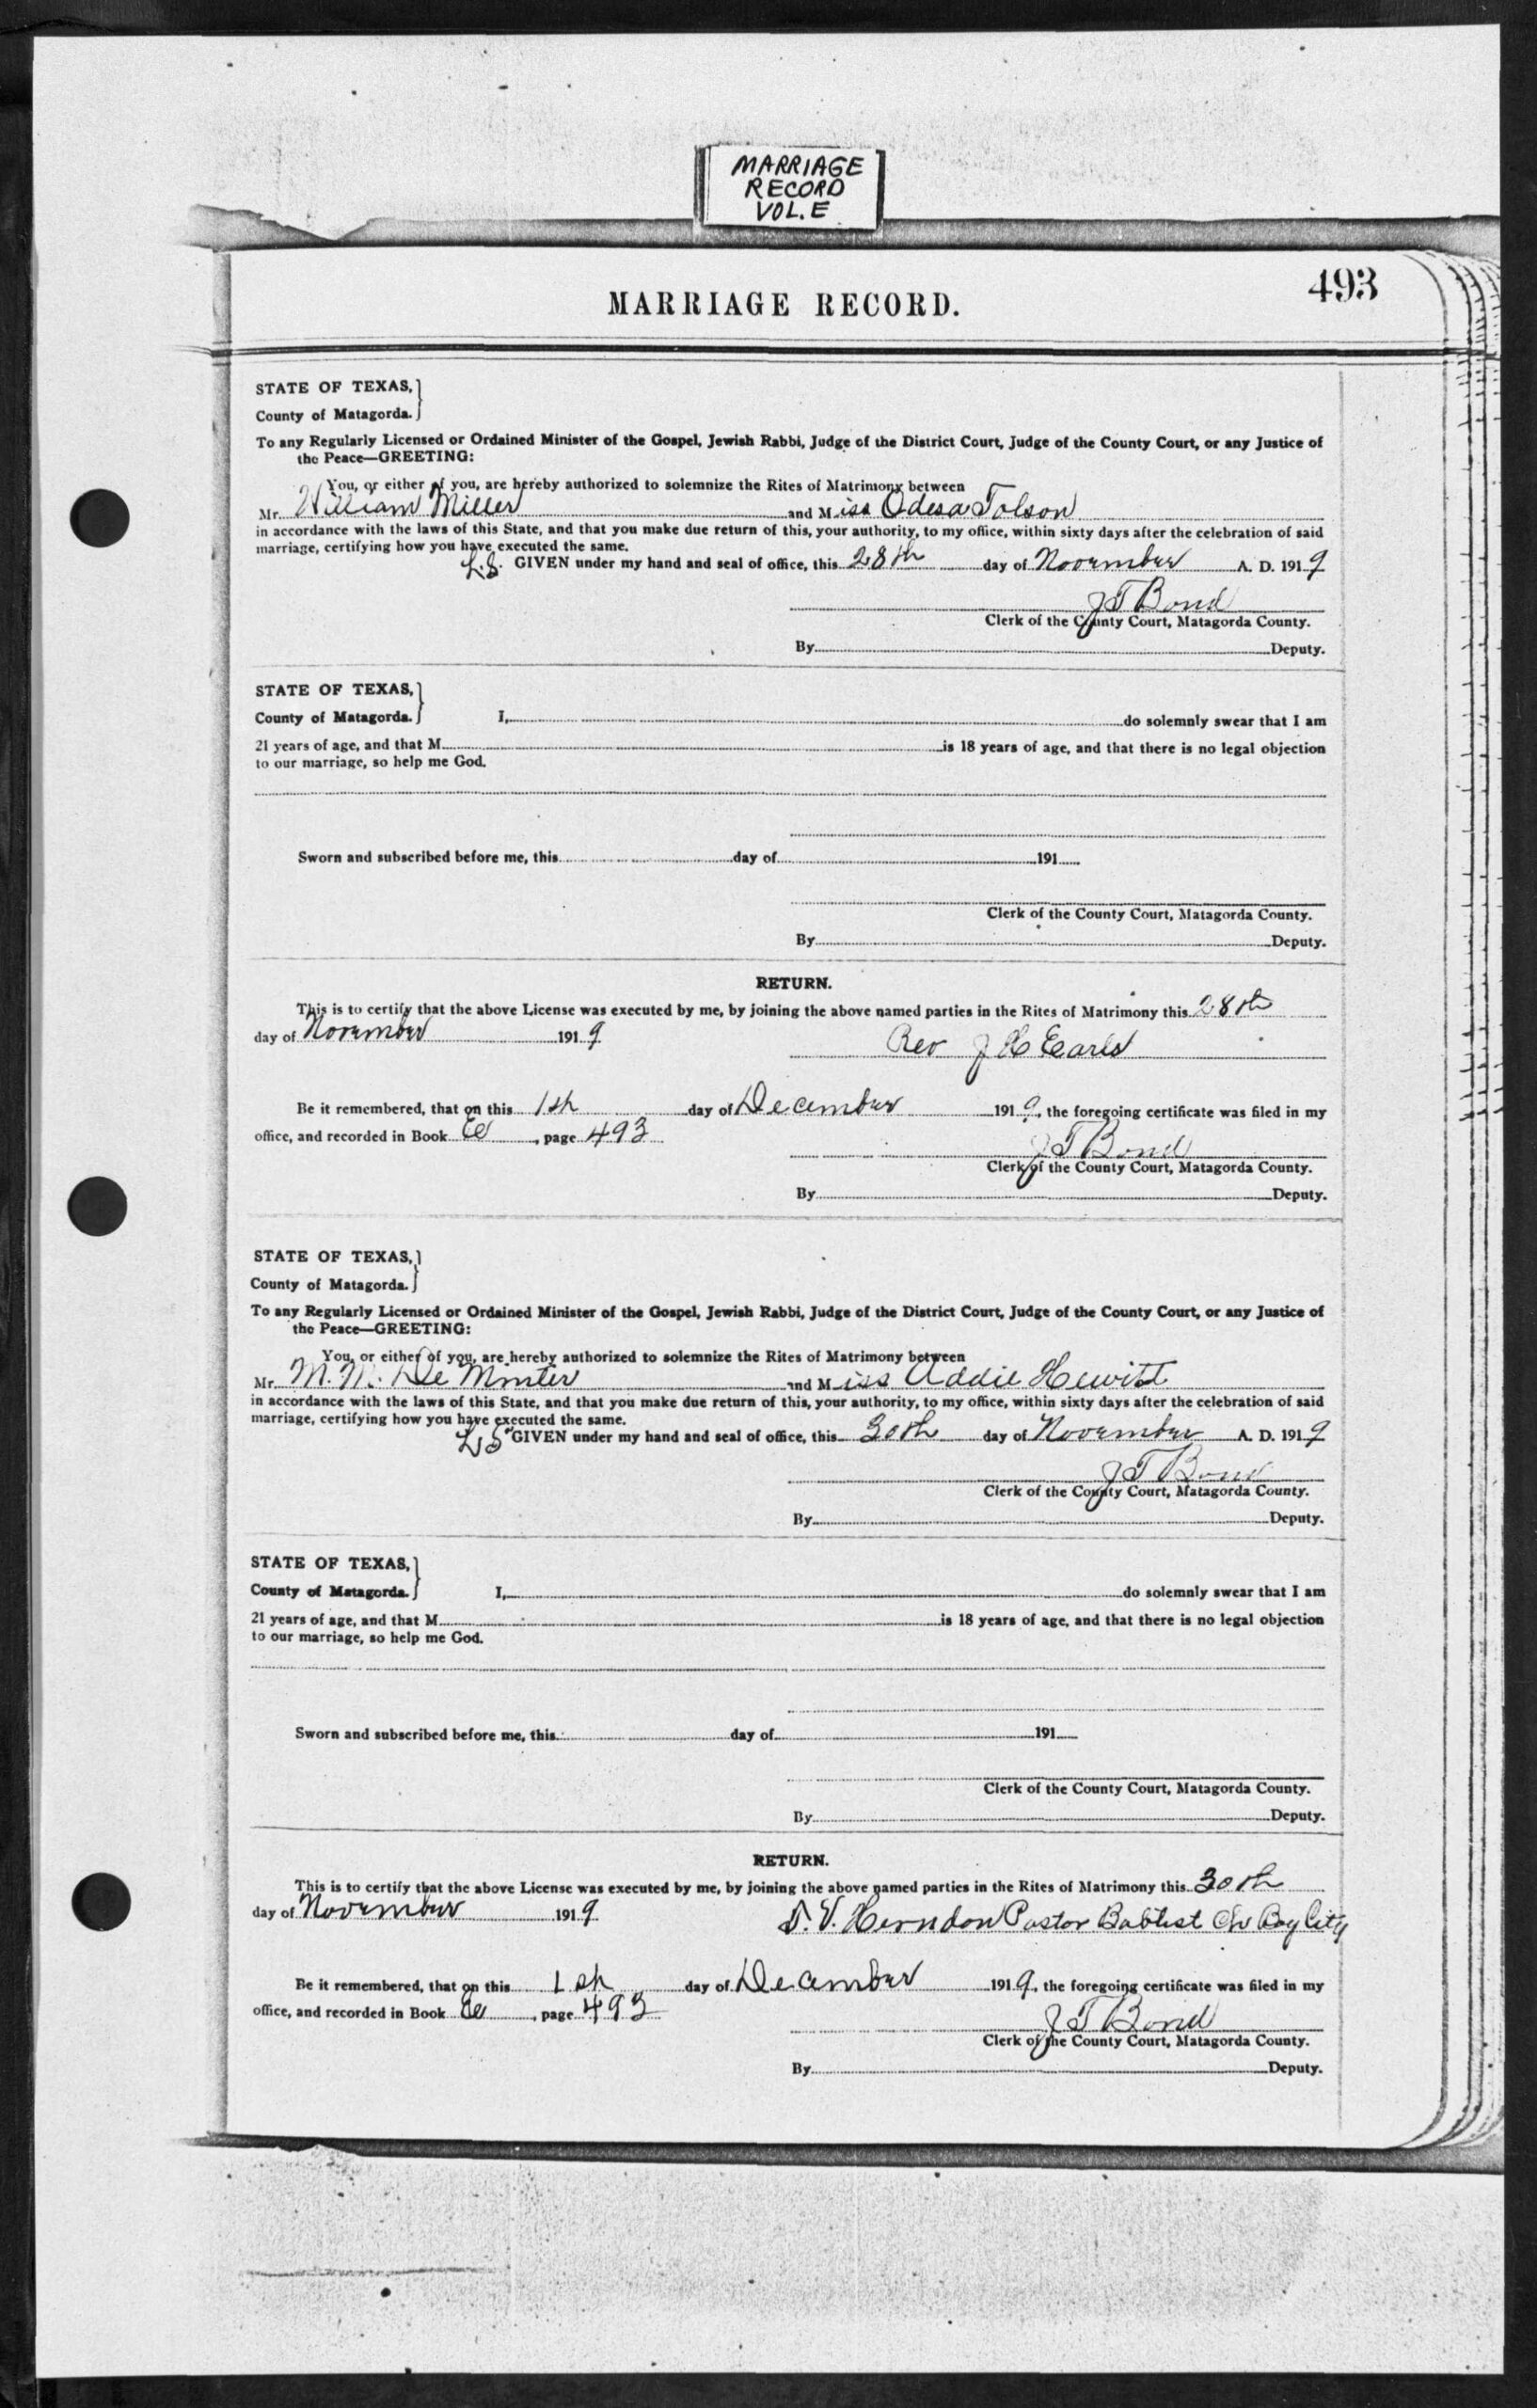 MARRIAGE
RECORD
VOL. E
493
MARRIAGE RECORD.
STATE OF TEXAS,
County of Matagorda.
To any Regularly Licensed or Ordained Minister of the Gospel, Jewish Rabbi, Judge of the District Court, Judge of the County Court, or any Justice of
the Peace—GREETING:
You, or either of you, are hereby authorized to solemnize the Rites of Matrimony between
Mr. William Miller and Miss Odesa Tolson
in accordance with the laws of this State, and that you make due return of this, your authority, to my office, within sixty days after the celebration of said
marriage, certifying how you have executed the same.
L.S. GIVEN under my hand and seal of office, this 28th day of November A. D. 1919
J T Bond
Clerk of the County Court, Matagorda County.
By Deputy.
STATE OF TEXAS,
County of Matagorda. I, do solemnly swear that I am
21 years of age, and that M is 18 years of age, and that there is no legal objection
to our marriage, so help me God.
Sworn and subscribed before me, this day of 191
Clerk of the County Court, Matagorda County.
By Deputy.
RETURN.
This is to certify that the above License was executed by me, by joining the above named parties in the Rites of Matrimony this 28th
day of November 1919
Rev J H Earls
Be it remembered, that on this 1st day of December 1919, the foregoing certificate was filed in my
office, and recorded in Book E, page 493
J T Bond
Clerk of the County Court, Matagorda County.
By Deputy.
STATE OF TEXAS,
County of Matagorda.
To any Regularly Licensed or Ordained Minister of the Gospel, Jewish Rabbi, Judge of the District Court, Judge of the County Court, or any Justice of
the Peace—GREETING:
You, or either of you, are hereby authorized to solemnize the Rites of Matrimony between
Mr. M. M. De Minter and Miss Addie Hewitt
in accordance with the laws of this State, and that you make due return of this, your authority, to my office, within sixty days after the celebration of said
marriage, certifying how you have executed the same.
L.S. GIVEN under my hand and seal of office, this 30th day of November A. D. 1919
J T Bond
Clerk of the County Court, Matagorda County.
By Deputy.
STATE OF TEXAS,
County of Matagorda. I, do solemnly swear that I am
21 years of age, and that M is 18 years of age, and that there is no legal objection
to our marriage, so help me God.
Sworn and subscribed before me, this day of 191
Clerk of the County Court, Matagorda County.
By Deputy.
RETURN.
This is to certify that the above License was executed by me, by joining the above named parties in the Rites of Matrimony this 30th
day of November 1919
Herndon Pastor Babtist Ch Bay City
Be it remembered, that on this 1st day of December 1919, the foregoing certificate was filed in my
office, and recorded in Book E, page 493
J T Bond
Clerk of the County Court, Matagorda County.
By Deputy.